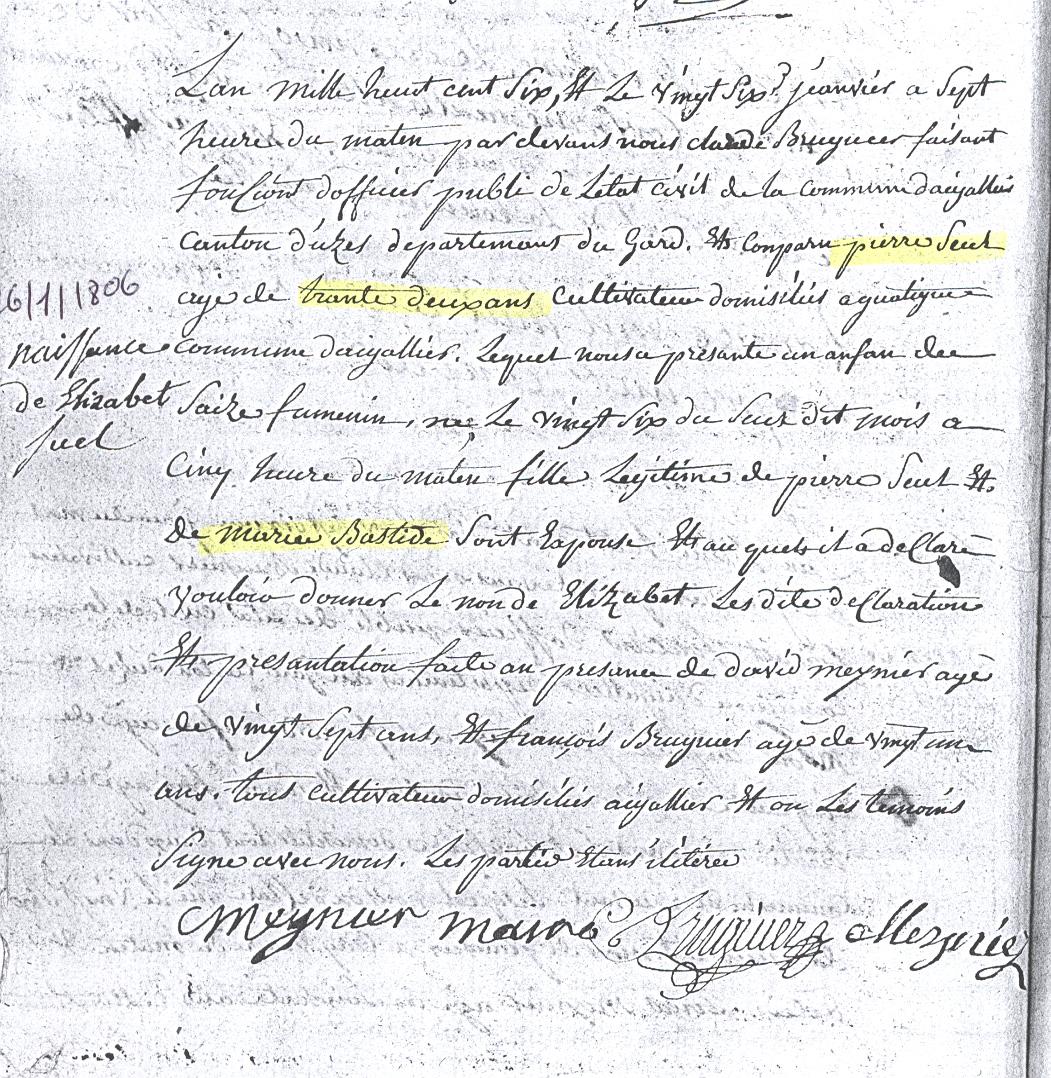 Lan mille heuit cent six, Et Le vingt six? jeanvier a sept
heure du maten par devans nous claude Bruguier faisant
fonscions dofficier publi de Letat civil de la commune daigallier
Canton d'uzes departemans du Gard. Et Conparu pierre Seut
agé de trante deux ans cultivateur domisiliés aguatigue
commune daigallier. Lequel nous a présanté un anfan de
Saixe fumenin, née Le vingt six du Seuz dit mois a
Cinq heure du maten fille Légitime de pierre Seut Et
de mariee Bastide Sont Epouse Et au quels il a declaré
vouloir donner Le non de Elizabet. Les dite declaration
Et présantation faite an présance de david meynier agé
de vingt sept ans, Et françois Bruguier agé de vingt un
ans. tous cultivateur domisiliés aigallier Et on Les temoins
Signe avec nous. Les partie Etans ilitéré
Meynier maire Bruguier
26/1/1806
naissance
de Elizabet
suel